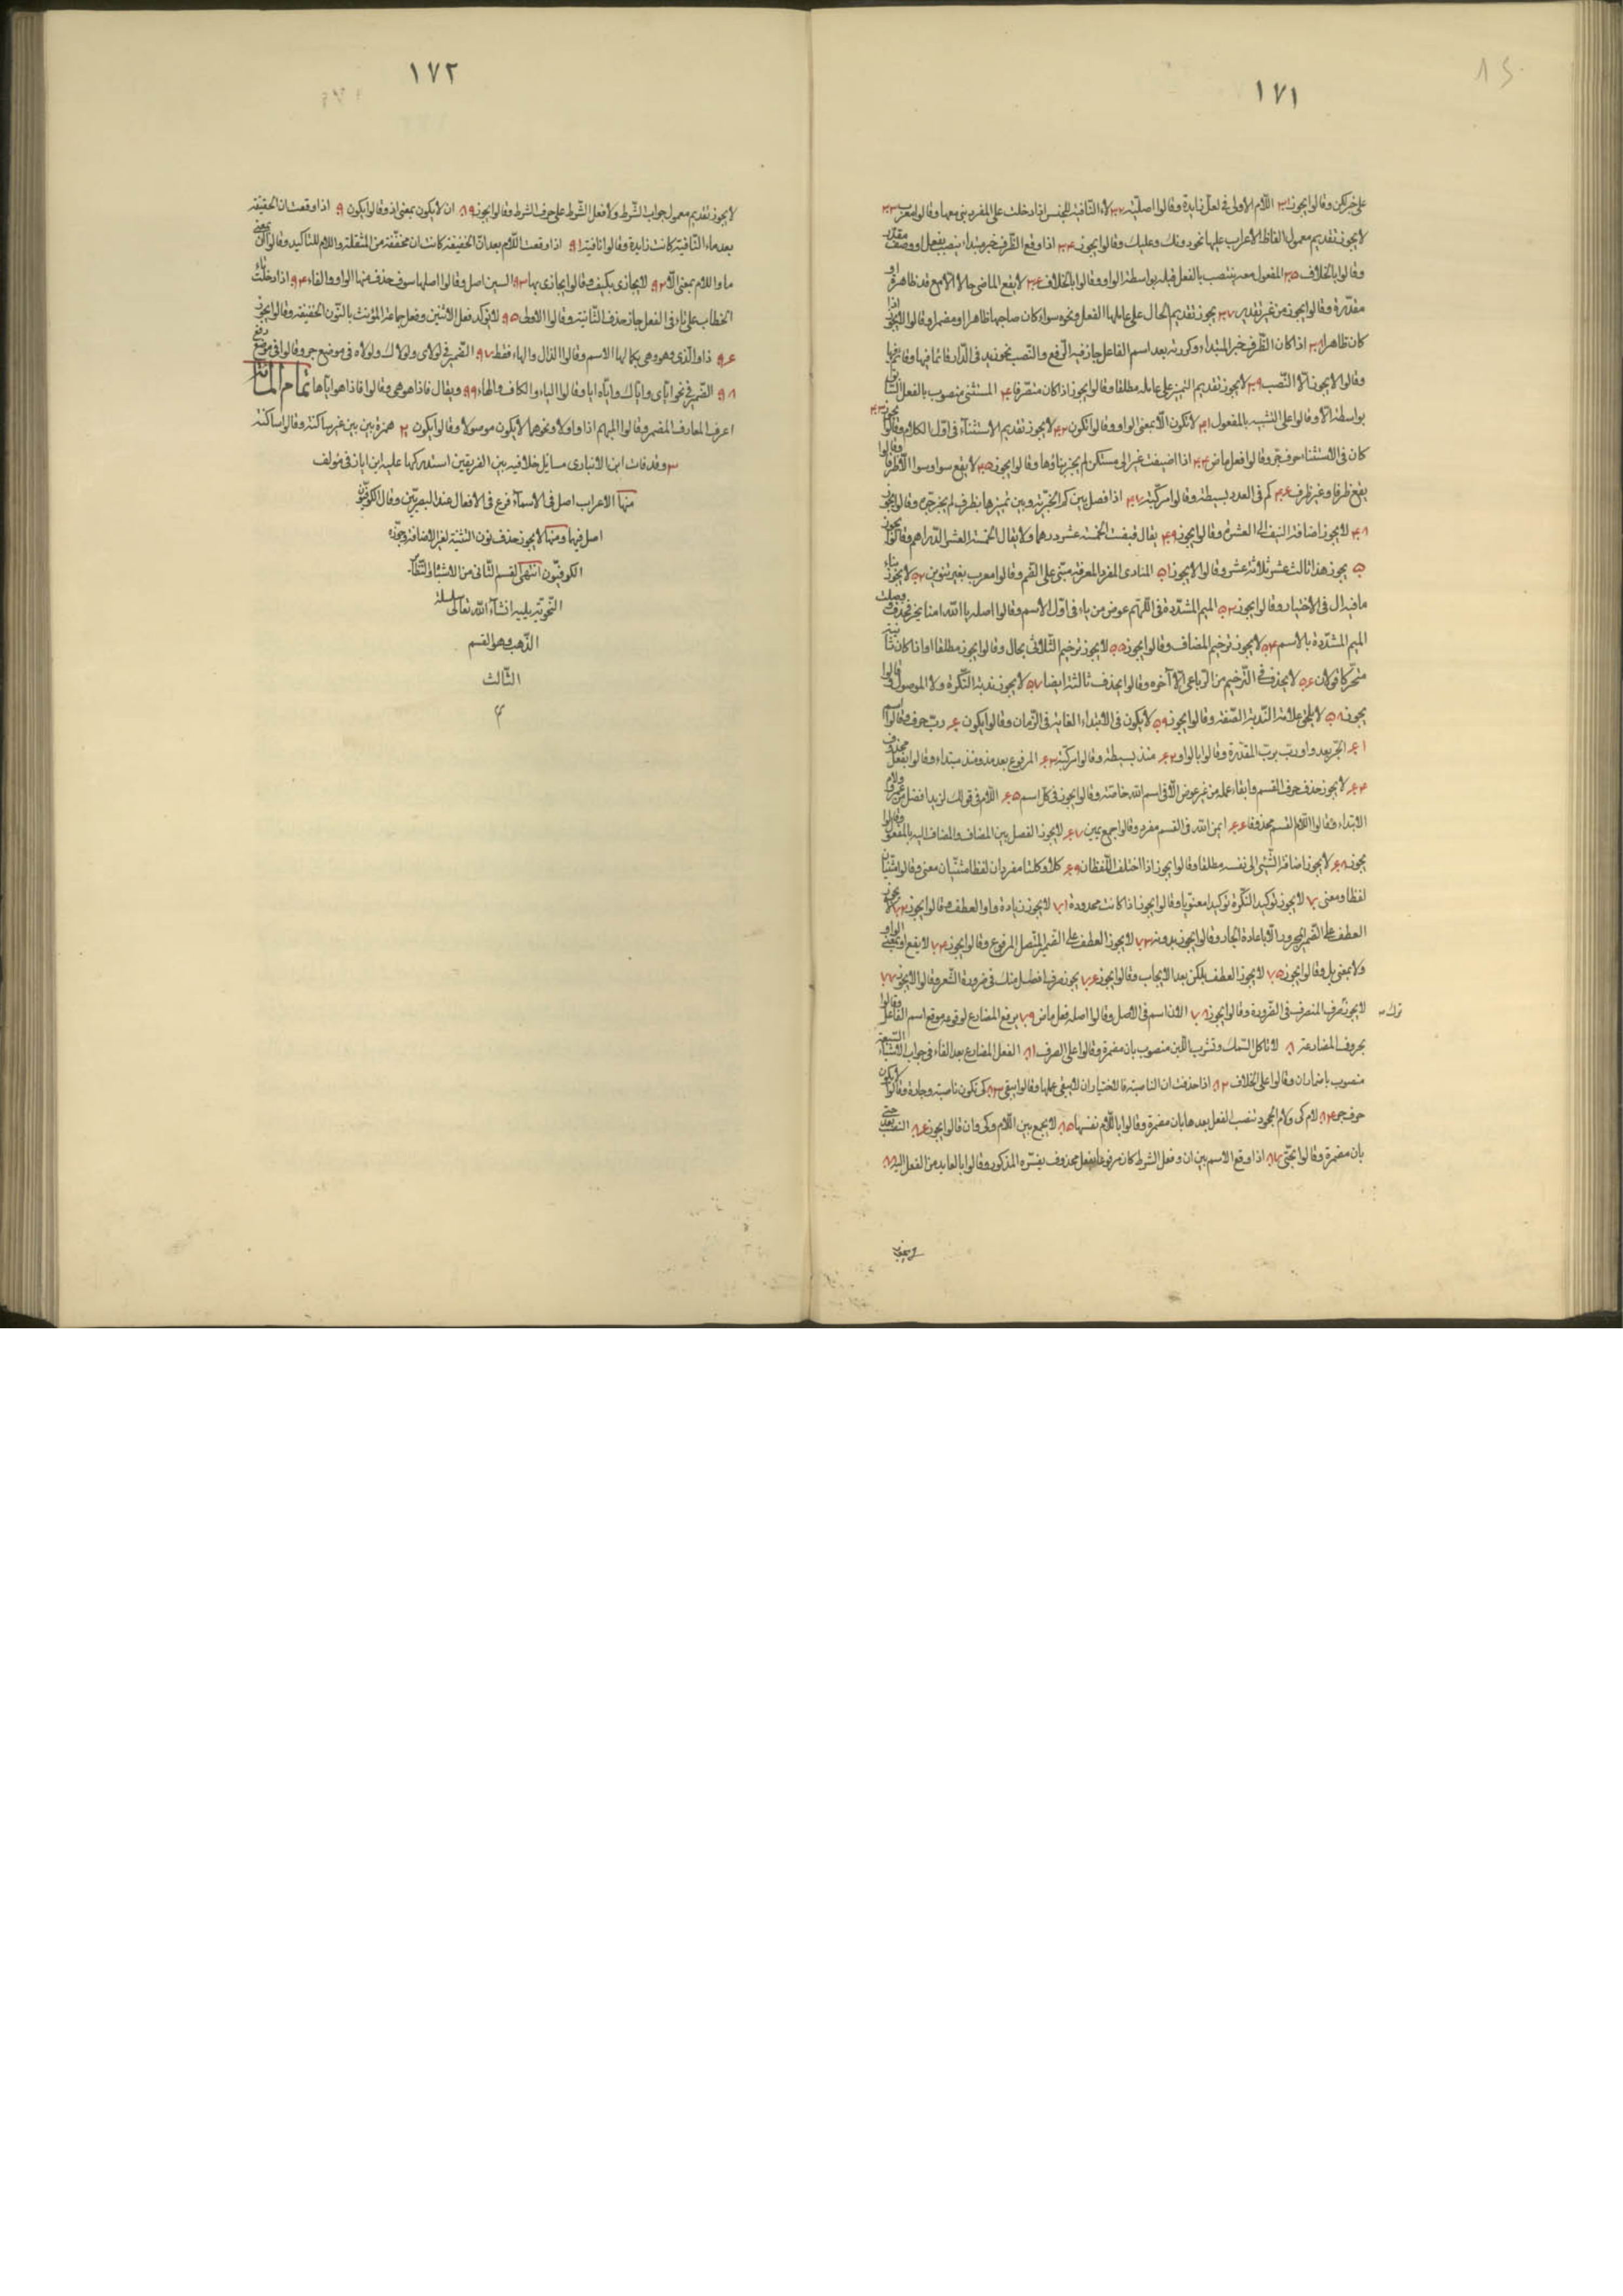 ١٧١
على خبر لكن وقالوا يجوز ٣١ اللام الاولى في لعل زايدة وقالوا اصلية ٣٢ لاء النافية للجنس اذا دخلت على المفرد بنى معها وقالوا معرب ٣٣
لا يجوز تقديم معمول الفاظ الاعراب عليها نحو دونك وعليك وقالوا يجوز ٣٤ اذا وقع الظرف خبر مبتداء ينصب بفعل او وصف مقدر
وقالوا بالخلاف ٣٥ المفعول معه ينتصب بالفعل قبله بواسطة الواو وقالوا بالخلاف ٣٦ لا يقع الماضى حالا الا مع قد ظاهرة او
مقدرة وقالوا يجوز من غير تقدير ٣٧ يجوز تقديم الحال على عاملها الفعل ونحوه سواء كان صاحبها ظاهرا او مضمرا وقالوا لا يجوز اذا
كان ظاهرا ٣٨ اذا كان الظرف خبر المبتداء وكررته بعد اسم الفاعل جاز فيه الرفع والنصب نحو زيد فى الدار قائما فيها وقائم فيها
وقالوا لا يجوز الا النصب ٣٩ لا يجوز تقديم التميز على عامله مطلقا وقالوا يجوز اذا كان متصرفا ٤٠ المستثنى منصوب بالفعل السابق
بواسطة الا وقالوا على التشبيه بالمفعول ٤١ لا تكون الا بمعنى الواو وقالوا تكون ٤٢ لا يجوز تقديم الاستثناء فى اول الكلام وقالوا يجوز ٤٣
كان فى الاستثناء حرف جر وقالوا فعل ماض ٤٤ اذا اضيفت غير الى متمكن لم يجز بناؤها وقالوا يجوز ٤٥ لا يقع سوا وسوا الا ظرفا وقالوا
يقع ظرفا وغير ظرف ٤٦ كم فى العدد بسيطة وقالوا مركبة ٤٧ اذا فصل بين كم الخبرية وبين تميزها بظرف لم يجز جره وقالوا يجوز
٤٨ لا يجوز اضافة النيف الى العشرة وقالوا يجوز ٤٩ يقال قبضت الخمسة عشر درهما ولا يقال الخمسة العشر الدراهم وقالوا يجوز
٥٠ يجوز هذا ثالث عشر ثلاثة عشر وقالوا لا يجوز ٥١ المنادى المفرد المعرفة مبنى على الضم وقالوا معرب بغير تنوين ٥٢ لا يجوز نداء
ما فيه ال فى الاختيار وقالوا يجوز ٥٣ الميم المشددة فى اللهم عوض من ياء فى اول الاسم وقالوا اصله يا الله امنا بخير فحذف ووصلت
الميم المشددة بالاسم ٥٤ لا يجوز ترخيم المضاف وقالوا يجوز ٥٥ لا يجوز ترخيم الثلاثى بحال وقالوا يجوز مطلقا او اذا كان ثانيه
متحركا قولان ٥٦ لا يحذف فى الترخيم من الرباعى الا آخره وقالوا يحذف ثالثه ايضا ٥٧ لا يجوز ندبة النكرة ولا الموصول وقالوا
يجوز ٥٨ لا يلحق علامة الندبة الصفة وقالوا يجوز ٥٩ لا يكون فى الابتداء الغاية فى الزمان وقالوا يكون ٦٠ رب حرف وقالوا اسم
٦١ الجر بعد واو رب برب المقدرة وقالوا بالواو ٦٢ منذ بسيطة وقالوا مركبة ٦٣ المرفوع بعد مذ ومنذ مبتداء وقالوا بفعل محذوف
٦٤ لا يجوز حذف حرف القسم وابقاء عمله من غير عوض الا فى اسم الله خاصة وقالوا يجوز فى كل اسم ٦٥ اللام فى قولك لزيد افضل من عمرو لام
الابتداء وقالوا اللام القسم محذوفا ٦٦ ايمن الله فى القسم مفرد وقالوا جمع يمين ٦٧ لا يجوز الفصل بين المضاف والمضاف اليه بالمفعول وقالوا
يجوز ٦٨ لا يجوز اضافة الشئ الى نفسه مطلقا وقالوا يجوز اذا اختلف اللفظان ٦٩ كلا وكلتا مفردان لفظا مثنيان معنى وقالوا مثنيان
لفظا ومعنى ٧٠ لا يجوز توكيد النكرة توكيدا معنويا وقالوا يجوز اذا كانت محدودة ٧١ لا يجوز زيادة واو العطف وقالوا يجوز ٧٢ لا يجوز
العطف على الضمير المجرور الا باعادة الجار وقالوا يجوز بدونه ٧٣ لا يجوز العطف على الضمير المتصل المرفوع وقالوا يجوز ٧٤ لا يقع او بمعنى الواو
ولا بمعنى بل وقالوا يجوز ٧٥ لا يجوز العطف بلكن بعد الايجاب وقالوا يجوز ٧٦ يجوز صرف افضل منك فى ضرورة الشعر وقالوا لا يجوز ٧٧
لا يجوز صرف المنصرف فى الضرورة وقالوا يجوز ٧٨ الان اسم فى الاصل وقالوا اصله فعل ماض ٧٩ يرفع المضارع لوقوعه موقع اسم الفاعل وقالوا
ترك
بحروف المضارعة ٨٠ لا تاكل السمك وتشرب اللبن منصوب بان مضمرة وقالوا على الصرف ٨١ الفعل المضارع بعد الفاء فى جواب الاشياء السبعة
منصوب باضمار ان وقالوا على الخلاف ٨٢ اذا حذفت ان الناصبة فالاختيار ان لا يبقى عملها وقالوا يبقى ٨٣ كى تكون ناصبة وجارة وقالوا لا يكون
حرف جر ٨٤ لام كى ولام الجحود تنصب الفعل بعدها بان مضمرة وقالوا باللام نفسها ٨٥ لا يجمع بين اللام وكى وان قالوا يجوز ٨٦ النصب بعد حتى
بان مضمرة وقالوا بحتى ٨٧ اذا وقع الاسم بين ان وفعل الشرط كان مرفوعا بفعل محذوف يفسره المذكور وقالوا بالعايد من الفعل اليه ٨٨
١٧٢
لا يجوز تقديم معمول جواب الشرط ولا فعل الشرط على حرف الشرط وقالوا يجوز ٨٩ ان لا يكون بمعنى اذ وقالوا يكون ٩٠ اذا وقعت ان الخفيفة
بعد ماء النافية كانت زايدة وقالوا نافية ٩١ اذا وقعت اللام بعد ان الخفيفة كانت ان مخففة من المثقلة واللام للتاكيد وقالوا ان بمعنى
ما واللام بمعنى الا ٩٢ لا يجازى بكيف وقالوا يجازى بها ٩٣ السين اصل وقالوا اصلها سوف حذف منها الواو والفاء ٩٤ اذا دخلت تاء
الخطاب على تاء فى الفعل جاز حذف الثانية وقالوا الاولى ٩٥ لا يوكد فعل الاثنين وفعل جماعة المؤنث بالنون الخفيفة وقالوا يجوز
٩٦ ذا والذى وهو وهى بكمالها الاسم وقالوا الذال والهاء فقط ٩٧ الضمير فى لولاى ولولاك ولولاه فى موضع جر وقالوا فى موضع رفع
٩٨ الضمير فى نحو اياى واياك واياه ايا وقالوا الياء والكاف والهاء ٩٩ ويقال فاذا هو هى وقالوا فاذا هو اياها تمام المائة
اعرف المعارف المضمر وقالوا المبهم اذا واولا ونحوهما لا يكون موصولا وقالوا يكون ٢ همزة بين بين غير ساكنة وقالوا ساكنة
٣ وقد فات ابن الانبارى مسايل خلافيه بين الفريقين استدركها عليه ابن اياز فى مؤلف
منها الاعراب اصل فى الاسماء فرع فى الافعال عند البصريين وقال الكوفيون
اصل فيها ومنها لا يجوز حذف نون التثنية لغير الاضافة وجوزه
الكوفيون انتهى القسم الثانى من الاشباه والنظائر
النحوية يليه انشاء الله تعالى سلسلة
الذهب وهو القسم
الثالث